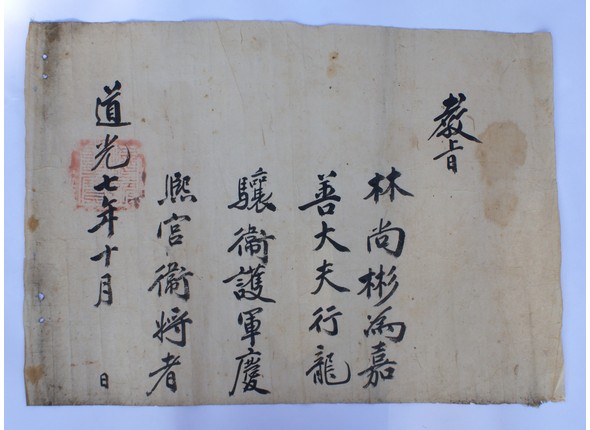 教旨
林尚彬為嘉
善大夫行龍
驤衛護軍慶
熙宮衛將者
道光七年十月 日